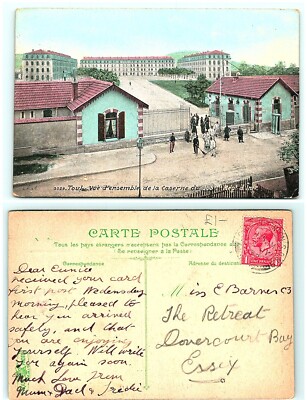 Toul. Vue d'ensemble de la Caserne
CARTE POSTALE
Tous les pays étrangers n'acceptent pas la Correspondance au
Se renseigner à la Poste
Correspondance
Adresse du destinataire
£1-
Dear Eunice
received your card
first post Wednesday
morning, pleased to
hear you arrived
safely, and that
you are enjoying
yourself. Will write
to again soon.
Much Love from
Mum & Dad &
Miss E Barnes
The Retreat
Dovercourt Bay
Essex